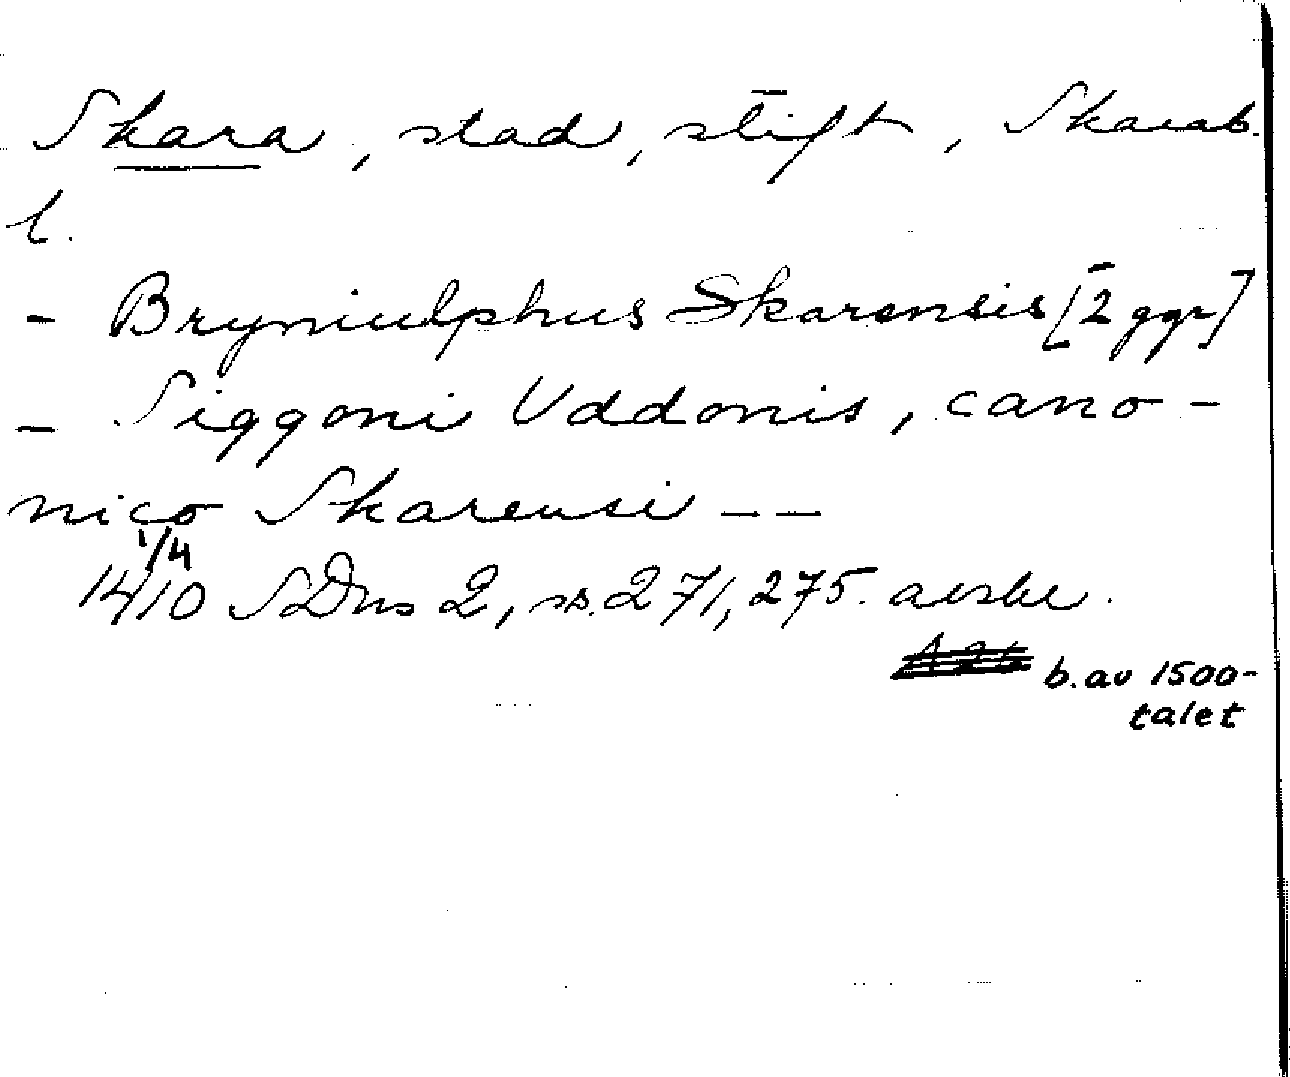 Skara, stad, stift, Skarab.
l.
- Bryniulphus Skarensis [2 ggr]
- Siggoni Uddonis, cano-
nico Skarensi --
1/4
1410 SDns 2, ss. 271, 275. avskr.
b. av 1500-
talet